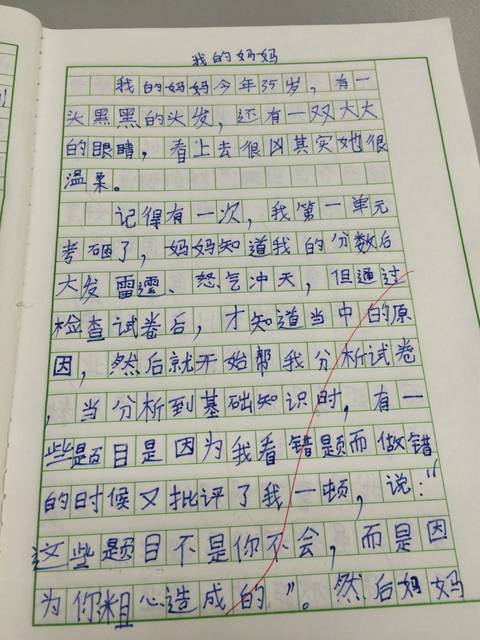 我的妈妈
我的妈妈今年35岁，有一
头黑黑的头发，还有一双大大
的眼睛，看上去很凶其实她很
温柔。
记得有一次，我第一单元
考砸了，妈妈知道我的分数后
大发雷霆、怒气冲天，但通过
检查试卷后，才知道当中的原
因，然后就开始帮我分析试卷
，当分析到基础知识时，有一
些题目是因为我看错题而做错
的时候又批评了我一顿，说：“
这些题目不是你不会，而是因
为你粗心造成的”。然后妈妈